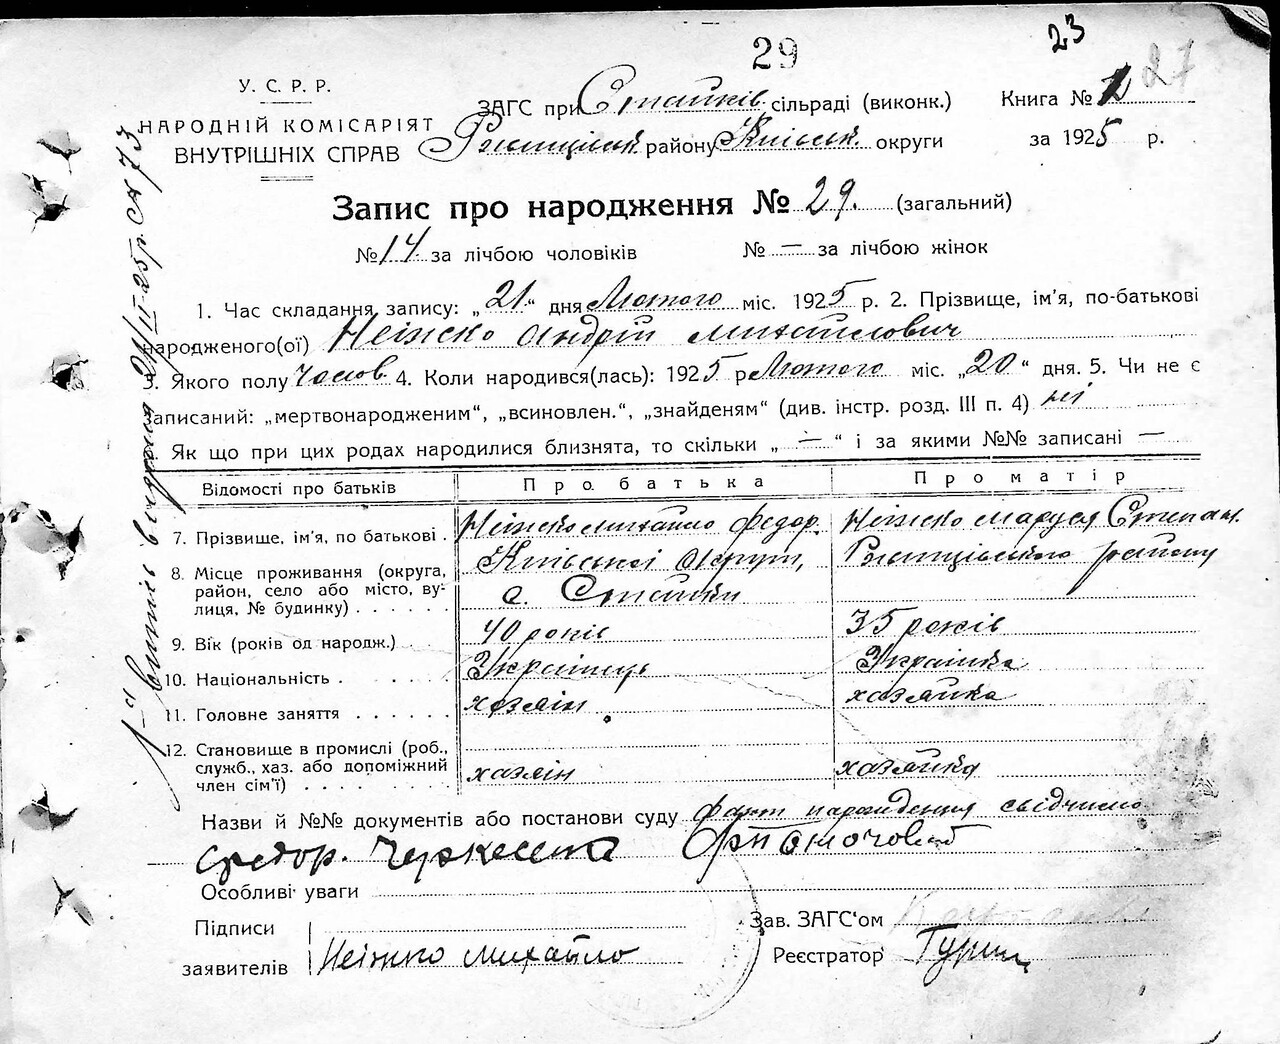 29
23
27
У. С. Р. Р.
НАРОДНІЙ КОМІСАРІЯТ
ВНУТРІШНІХ СПРАВ
ЗАГС при Стайків. сільраді (виконк.)
Книга №
Ржищівськ району Київськ. округи
за 1925 р.
Запис про народження № 29. (загальний)
№ 14. за лічбою чоловіків № — за лічбою жінок
1. Час складання запису: „21“ дня Лютого міс. 1925 р. 2. Прізвище, ім’я, по-батькові
народженого(ої) Неїжко Андрій Михайлович
3. Якого полу чолов. 4. Коли народився(лась): 1925 р. Лютого міс. „20“ дня. 5. Чи не є
записаний: „мертвонародженим“, „всиновлен.“, „знайденям“ (див. інстр. розд. III п. 4) ні
Як що при цих родах народилися близнята, то скільки „ — “ і за якими №№ записані —
Відомості про батьків
Про батька
Про матір
7. Прізвище, ім’я, по батькові .
Неїжко Михайло Федор.
Неїжко Маруся Степан.
8. Місце проживання (округа, район, село або місто, вулиця, № будинку) . . . . . .
Київської округи,
Ржищівського району
с. Стайки
9. Вік (років од народж.) . . . .
40 років
35 років
10. Національність . . . . . . .
Українець
Українка
11. Головне заняття . . . . . .
хазяїн
хазяйка
12. Становище в промислі (роб., служб., хаз. або допоміжний член сім’ї) . . . . . . . .
хазяїн
хазяйка
Назви й №№ документів або постанови суду факт народження свідчимо
Особливі уваги
Підписи
заявителів
Неїжко Михайло
Зав. ЗАГС‘ом
Реєстратор